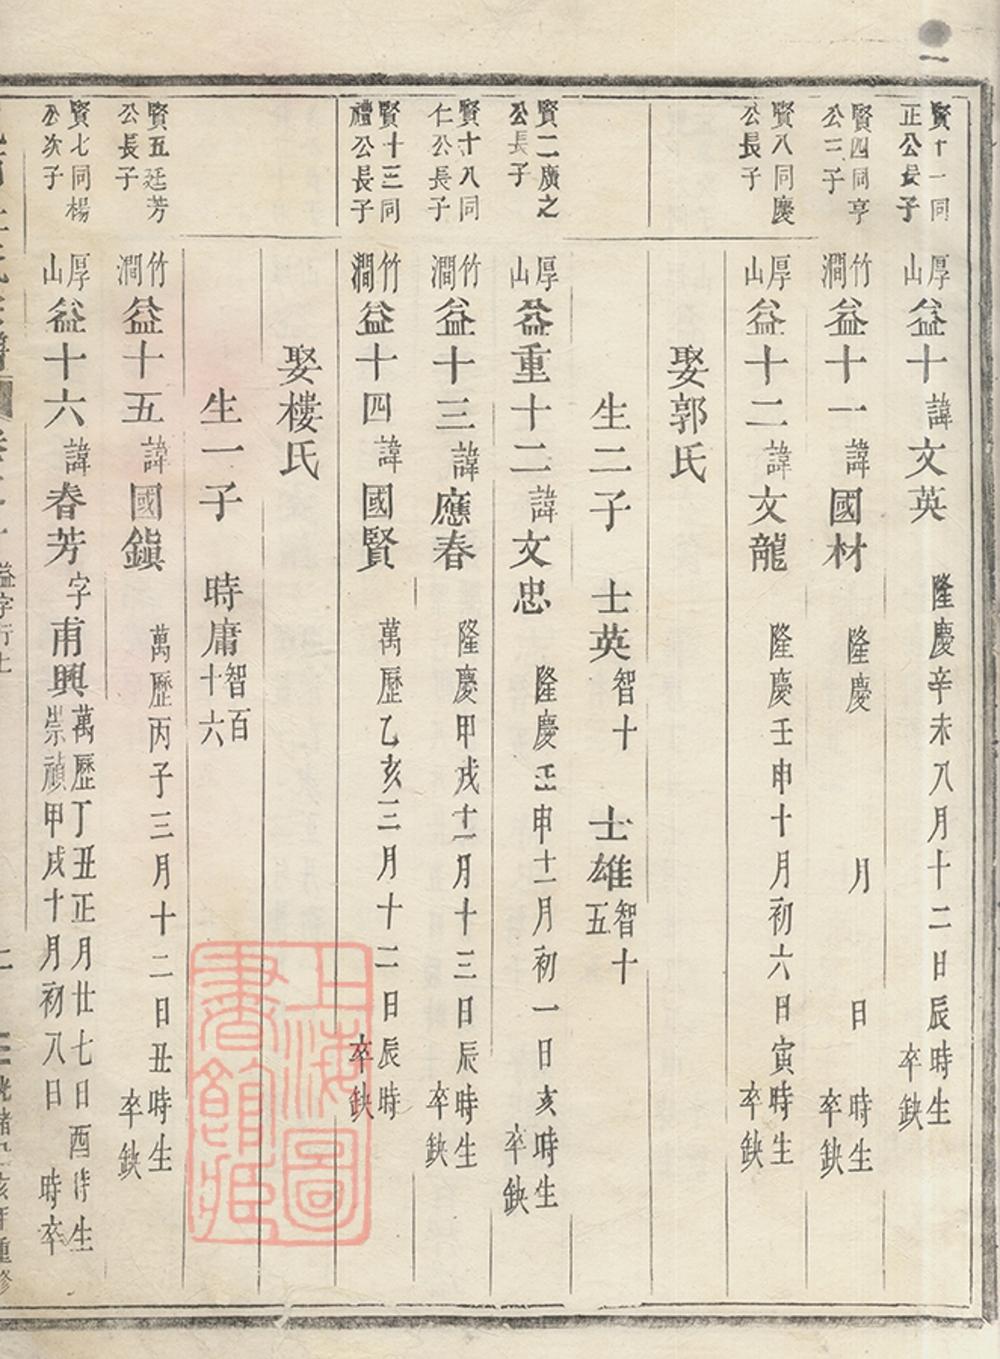 賢十一同正公長子 厚山益十諱文英 隆慶辛未八月十二日辰時生卒缺
賢四同亨公三子 竹澗益十一諱國材 隆慶 月 日 時生卒缺
賢八同慶公長子 厚山益十二諱文龍 隆慶壬申十月初六日寅時生卒缺
娶郭氏
生二子 士英智十 士雄智十五
賢二廣之公長子 厚山益重十二諱文忠 隆慶壬申十一月初一日亥時生卒缺
賢十八同仁公長子 竹澗益十三諱應春 隆慶甲戌十二月十三日辰時生卒缺
賢十三同禮公長子 竹澗益十四諱國賢 萬歷乙亥三月十二日辰時卒缺
娶樓氏
生一子 時庸智百十六
賢五廷芳公長子 竹澗益十五諱國鎭 萬歷丙子三月十二日丑時生卒缺
賢七同楊公次子 厚山益十六諱春芳字甫興 萬歷丁丑正月廿七日酉時生崇禎甲戌十月初八日 時卒
益字行上
上海圖書館藏